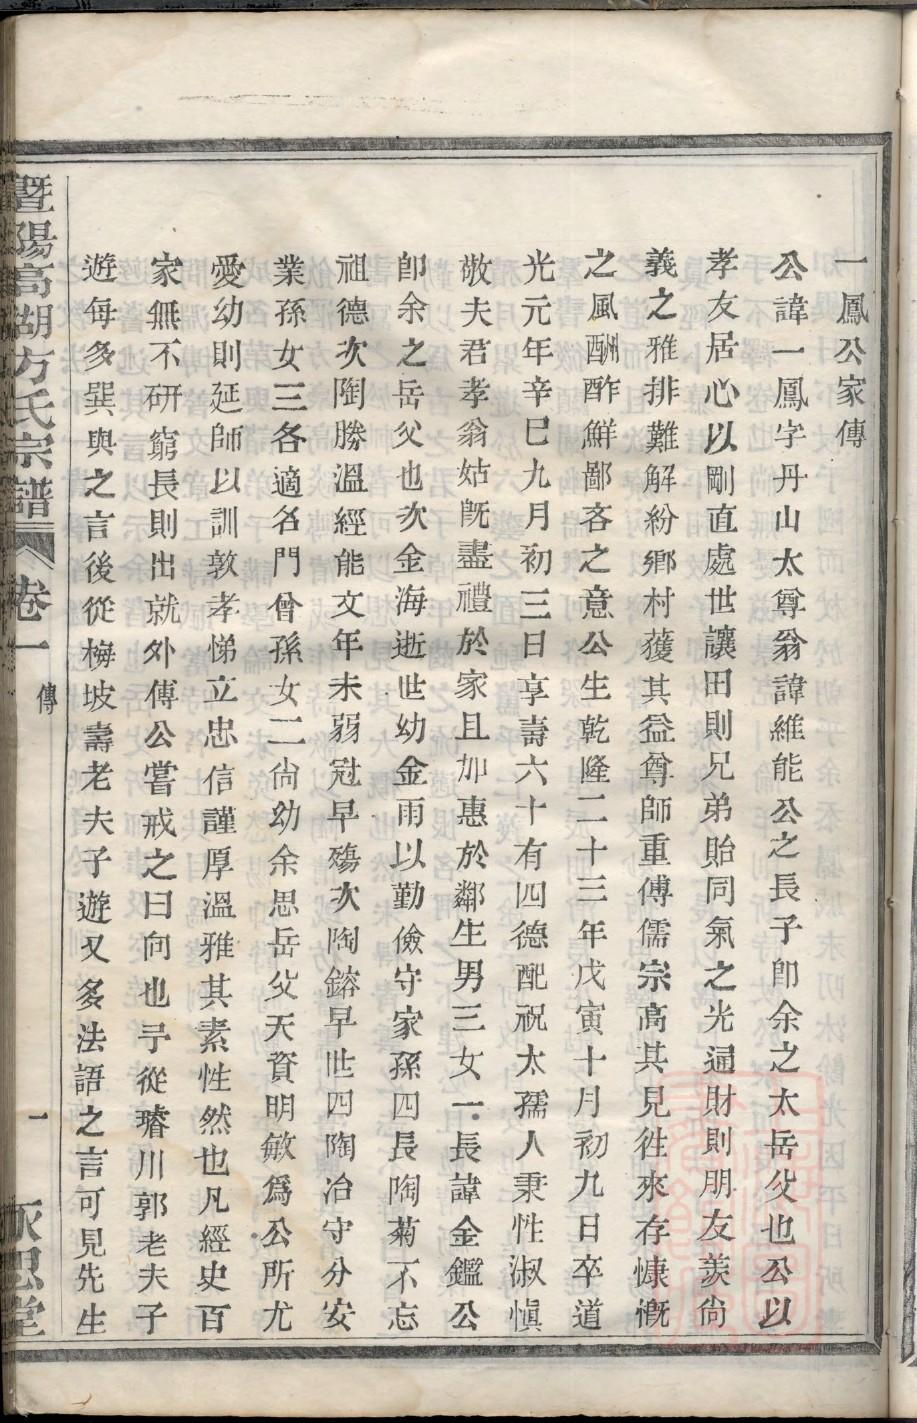 一鳳公家傳
公諱一鳳字丹山太尊翁諱維能公之長子卽余之太岳父也公以
孝友居心以剛直處世讓田則兄弟貽同氣之光通財則朋友羨尙
義之雅排難解紛鄉村獲其益尊師重傅儒宗高其見往來存慷慨
之風酬酢鮮鄙吝之意公生乾隆二十三年戊寅十月初九日卒道
光元年辛巳九月初三日享壽六十有四德配祝太孺人秉性淑愼
敬夫君孝翁姑旣盡禮於家且加惠於鄰生男三女一長諱金鑑公
卽余之岳父也次金海逝世幼金雨以勤儉守家孫四長陶菊不忘
祖德次陶勝溫經能文年未弱冠早殤次陶鎔早世四陶冶守分安
業孫女三各適名門曾孫女二尙幼余思岳父天資明敏爲公所尤
愛幼則延師以訓敦孝悌立忠信謹厚溫雅其素性然也凡經史百
家無不研窮長則出就外傅公嘗戒之曰向也予從璿川郭老夫子
遊每多巽與之言後從梅坡壽老夫子遊又多法語之言可見先生
暨陽高湖方氏宗譜 卷一 傳 一 永思堂